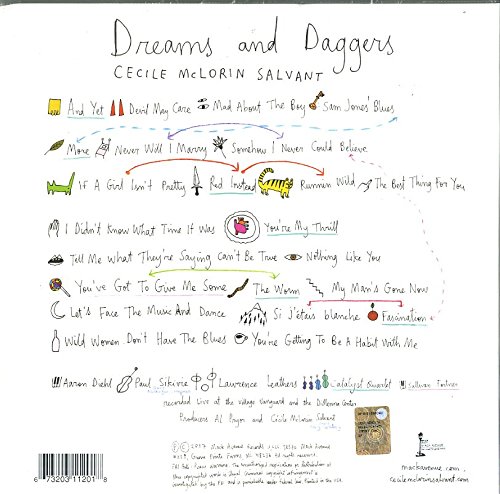 Dreams and Daggers
CECILE McLORIN SALVANT
And Yet Devil May Care Mad About The Boy Sam Jones' Blues
More Never Will I Marry Somehow I Never Could Believe
If A Girl Isn't Pretty Red Instead Runnin Wild The Best Thing For You
I Didn't Know What Time It Was You're My Thrill
Tell Me What They're Saying Can't Be True Nothing Like You
You've Got To Give Me Some The Worm My Man's Gone Now
Let's Face The Music And Dance Si j'étais blanche Fascination
Wild Women Don't Have The Blues You're Getting To Be A Habit With Me
Aaron Diehl Paul Sikivie Lawrence Leathers Catalyst Quartet Sullivan Fortner
recorded Live at the Village Vanguard and the DiMenna Center
Producers Al Pryor and Cécile McLorin Salvant
2017 Mack Avenue Records
mackavenue.com
cecilemclorinsalvant.com
6 73203 11201 8